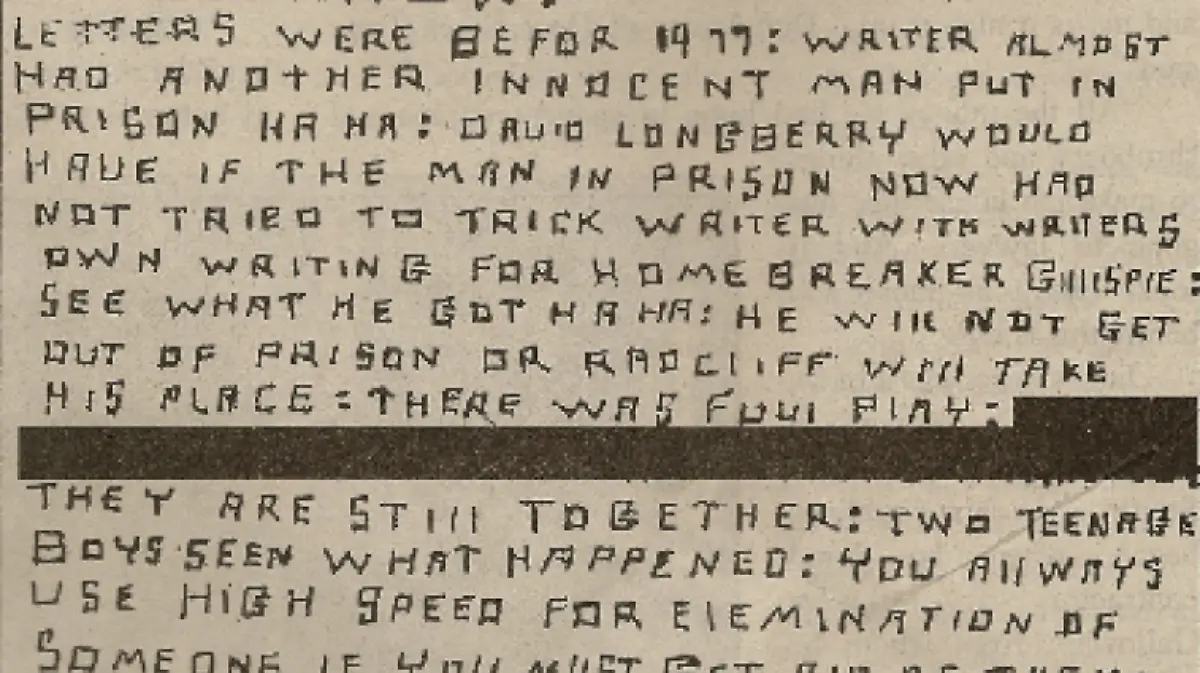 LETTERS WERE BEFOR 1977: WRITER ALMOST
HAD ANOTHER INNOCENT MAN PUT IN
PRISON HA HA: DAVID LONGBERRY WOULD
HAVE IF THE MAN IN PRISON NOW HAD
NOT TRIED TO TRICK WRITER WITH WRITERS
OWN WRITING FOR HOMEBREAKER GILLISPIE:
SEE WHAT HE GOT HA HA: HE WILL NOT GET
OUT OF PRISON OR RADCLIFF WILL TAKE
HIS PLACE: THERE WAS FOUL PLAY:
THEY ARE STILL TOGETHER: TWO TEENAGE
BOYS SEEN WHAT HAPPENED: YOU ALLWAYS
USE HIGH SPEED FOR ELEMINATION OF
SOMEONE IF YOU MUST GET RID OF THEM